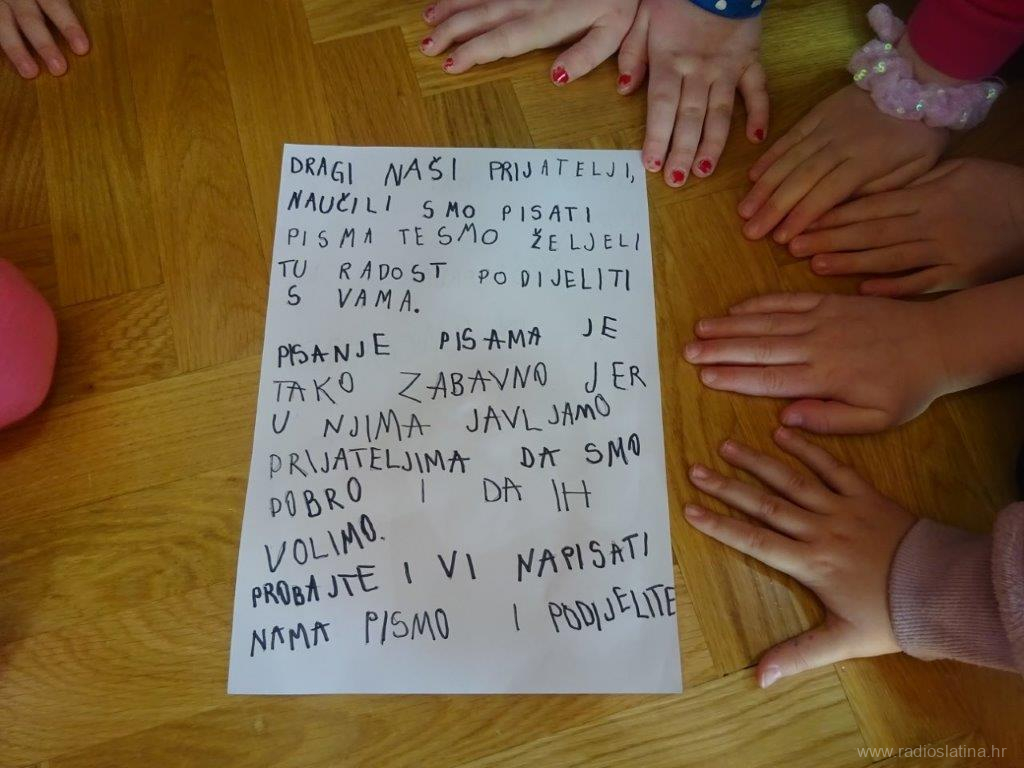 DRAGI NAŠI PRIJATELJI,
NAUČILI SMO PISATI
PISMA TE SMO ŽELJELI
TU RADOST PODIJELITI
S VAMA.
PISANJE PISAMA JE
TAKO ZABAVNO JER
U NJIMA JAVLJAMO
PRIJATELJIMA DA SMO
DOBRO I DA IH
VOLIMO.
PROBAJTE I VI NAPISATI
NAMA PISMO I PODIJELITE
www.radioslatina.hr